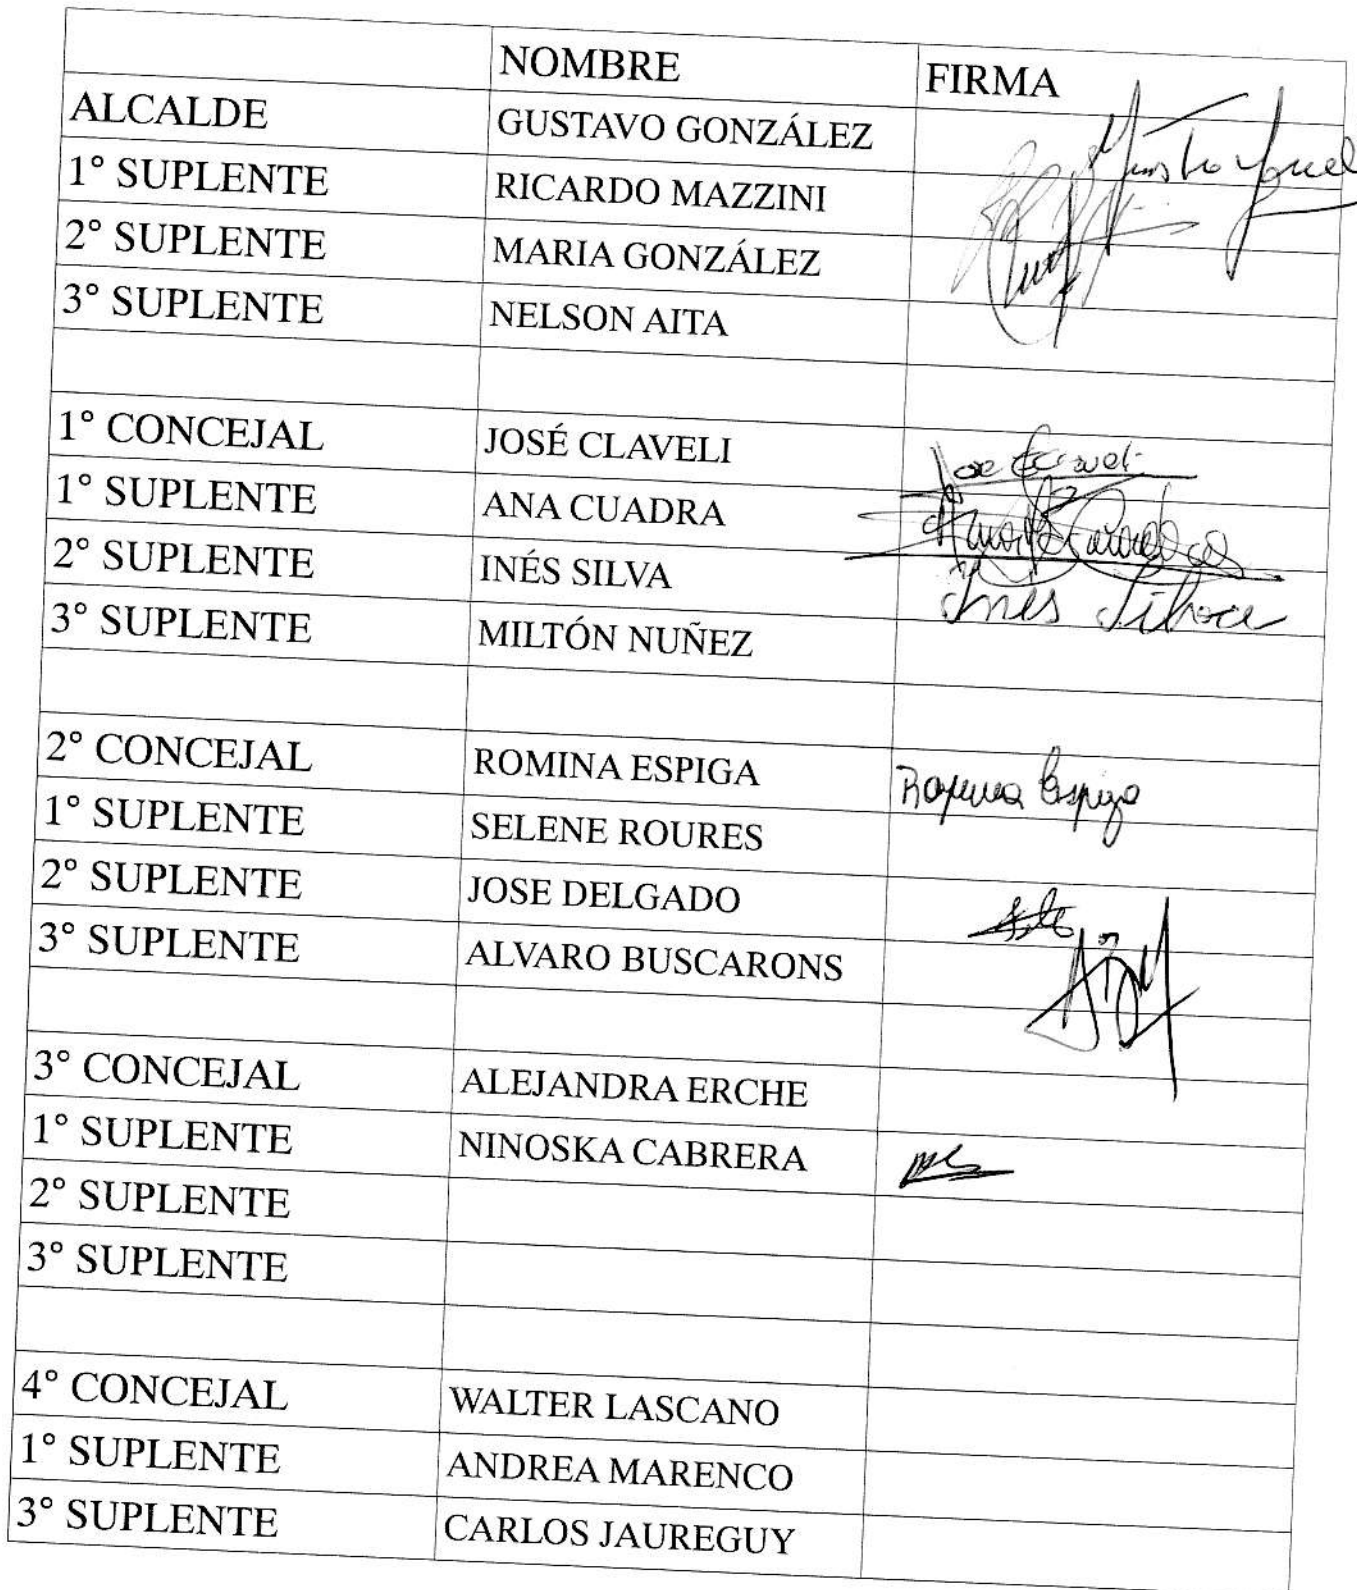 NOMBRE FIRMA
ALCALDE GUSTAVO GONZÁLEZ
1° SUPLENTE RICARDO MAZZINI
2° SUPLENTE MARIA GONZÁLEZ
3° SUPLENTE NELSON AITA
1° CONCEJAL JOSÉ CLAVELI Jose Claveli
1° SUPLENTE ANA CUADRA
2° SUPLENTE INÉS SILVA Inés Silva
3° SUPLENTE MILTÓN NUÑEZ
2° CONCEJAL ROMINA ESPIGA Romina Espiga
1° SUPLENTE SELENE ROURES
2° SUPLENTE JOSE DELGADO
3° SUPLENTE ALVARO BUSCARONS
3° CONCEJAL ALEJANDRA ERCHE
1° SUPLENTE NINOSKA CABRERA
2° SUPLENTE
3° SUPLENTE
4° CONCEJAL WALTER LASCANO
1° SUPLENTE ANDREA MARENCO
3° SUPLENTE CARLOS JAUREGUY